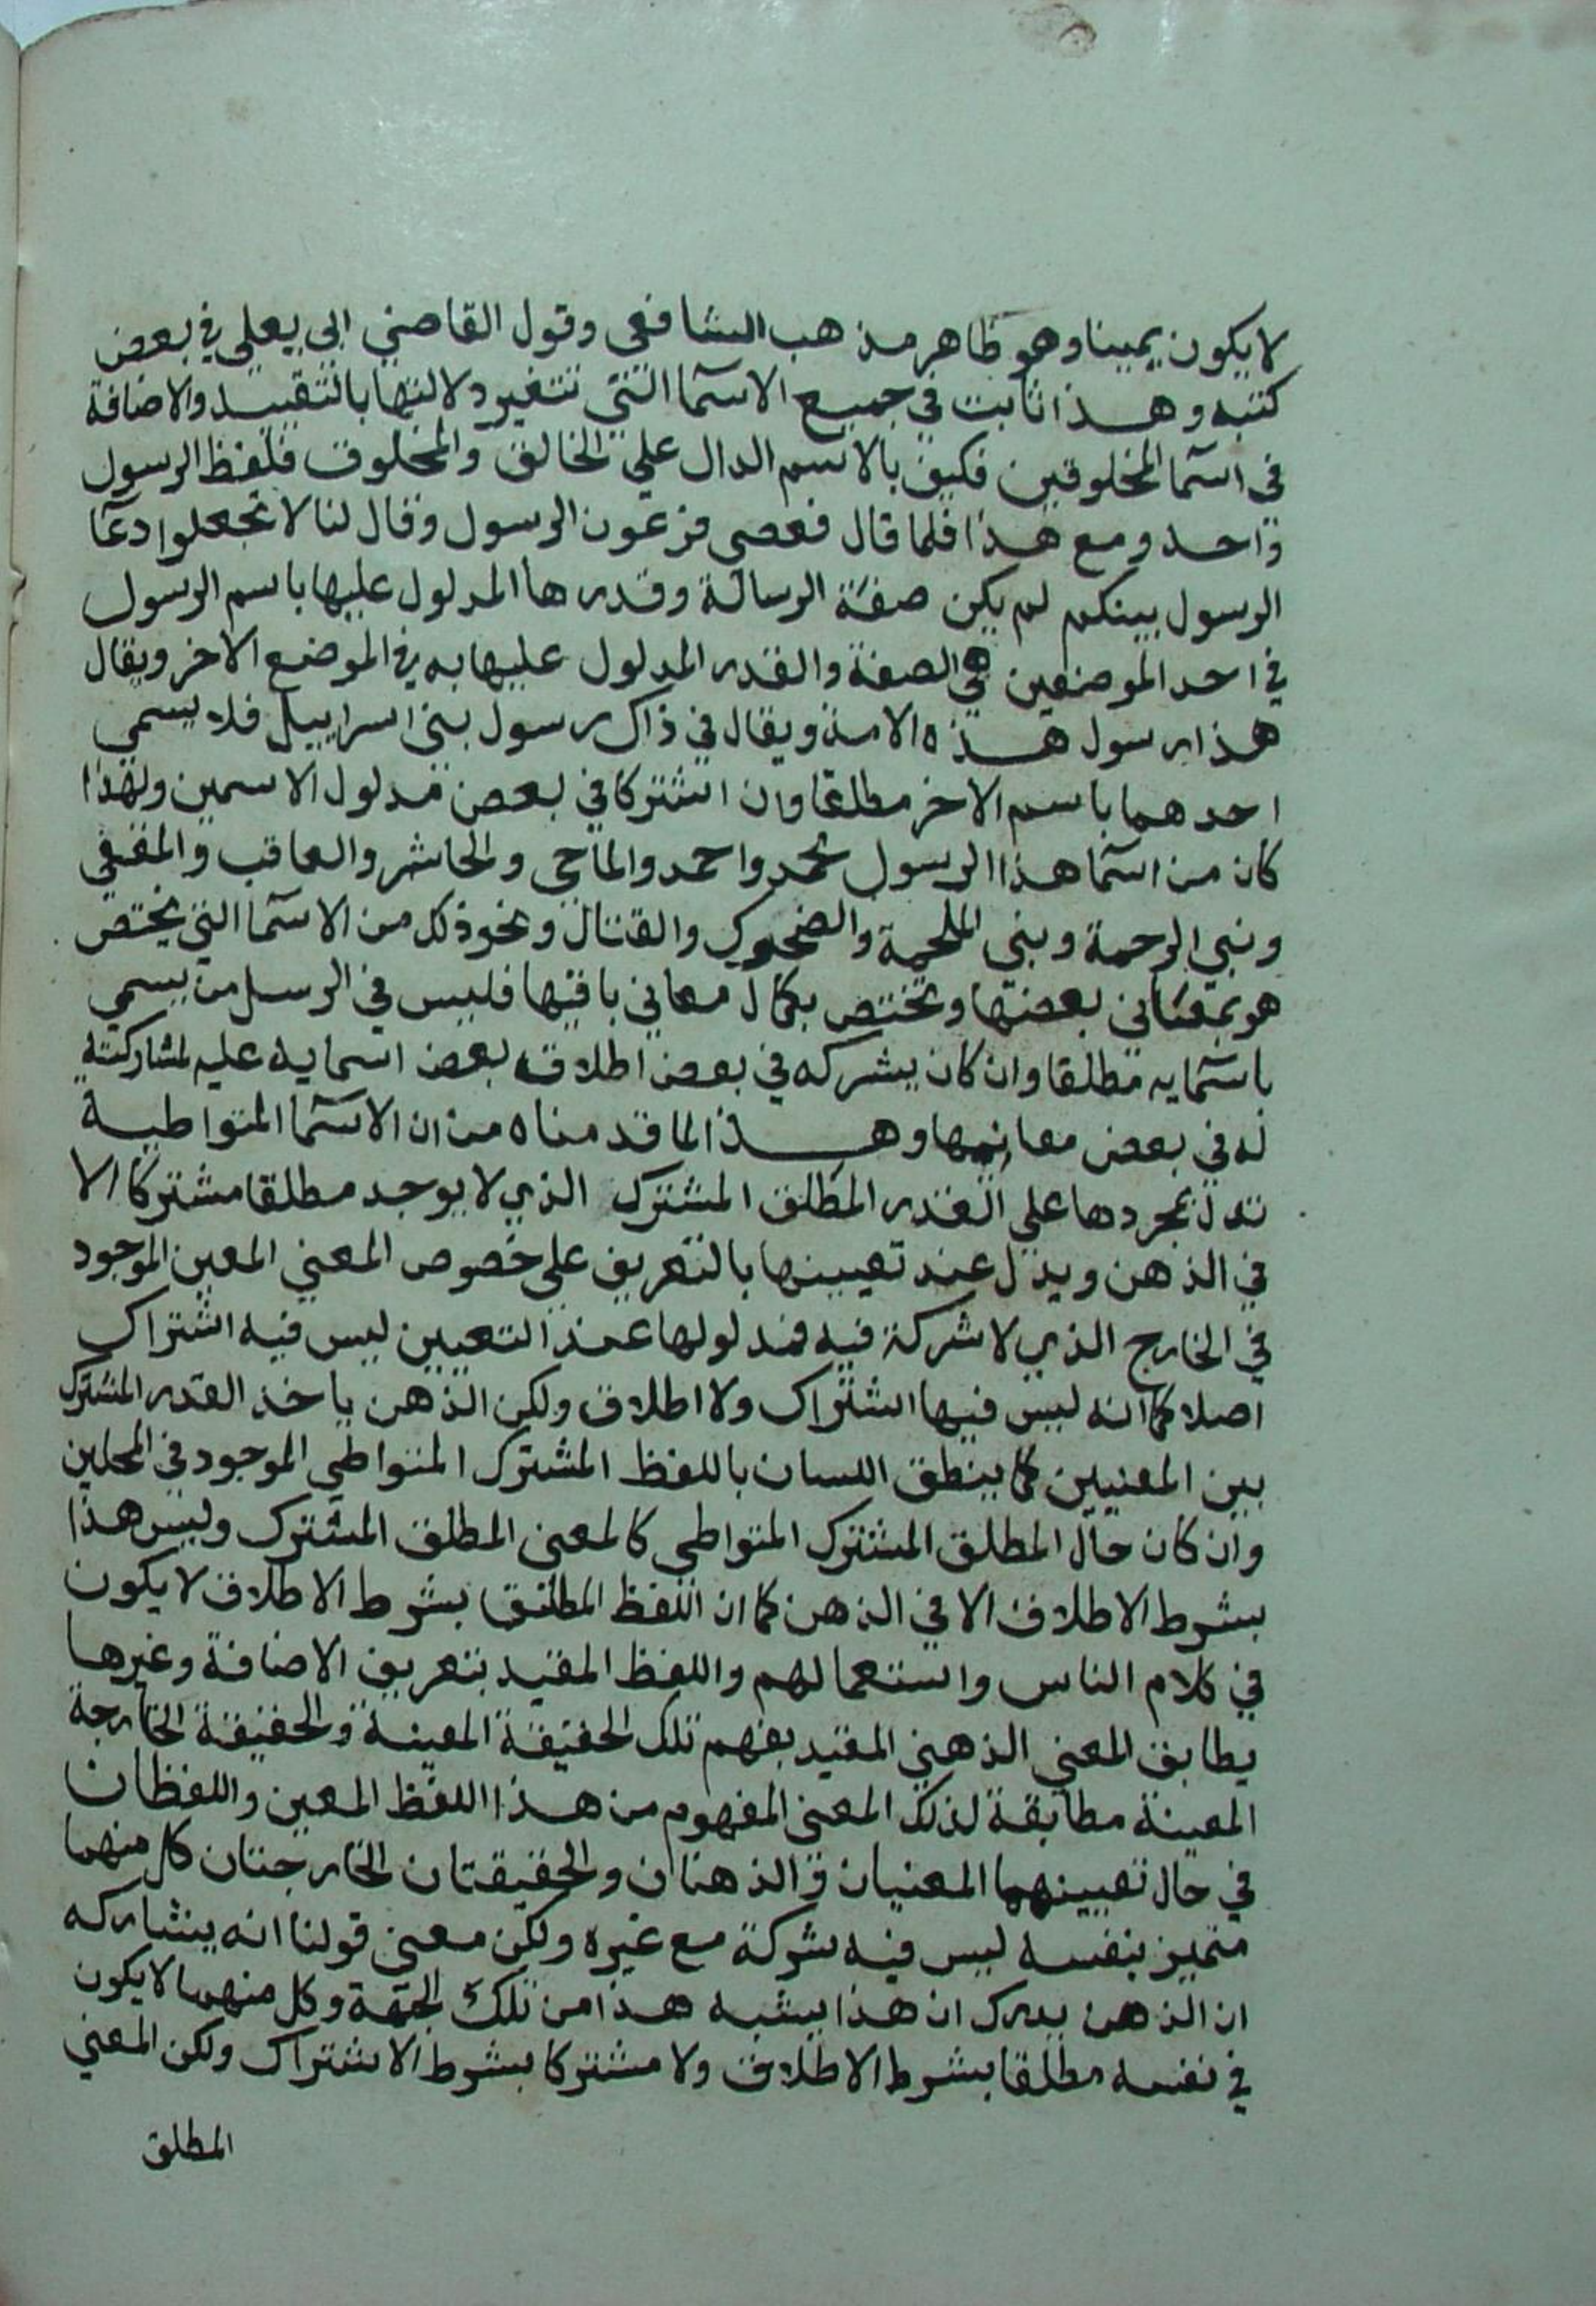 لا يكون يمينا وهو ظاهر مذهب الشافعي وقول القاضي ابي يعلي في بعض
كتبه وهذا ثابت في جميع الاسما التي تتغير دلالتها بالتقييد والاضافة
في اسما المخلوقين فكيف بالاسم الدال علي الخالق والمخلوق فلفظ الرسول
واحد ومع هذا فلما قال فعصي فرعون الرسول وقال لنا لا تجعلوا دعا
الرسول بينكم لم يكن صفة الرسالة وقدرها المدلول عليها باسم الرسول
في احد الموضعين هي الصفة والقدر المدلول عليها به في الموضع الاخر ويقال
هذا رسول هذه الامة ويقال في ذاك رسول بني اسراييل فلا يسمي
احدهما باسم الاخر مطلقا وان اشتركا في بعض مدلول الاسمين ولهذا
كان من اسما هذا الرسول محمد واحمد والماحي والحاشر والعاقب والمقفي
ونبي الرحمة ونبي الملحمة والضحوك والقتال ونحو ذلك من الاسما التي يختص
هو بمعاني بعضها وتختص بكمال معاني باقيها فليس في الرسل من يسمي
باسمايه مطلقا وان كان يشركه في بعض اطلاق بعض اسمايه عليه لمشاركته
له في بعض معانيها وهذا لما قدمناه من ان الاسما المتواطية
تدل بمجردها علي القدر المطلق المشترك الذي لا يوجد مطلقا مشتركا الا
في الذهن ويدل عند تعيينها بالتعريف علي خصوص المعني المعين الموجود
في الخارج الذي لا شركة فيه فمدلولها عند التعيين ليس فيه اشتراك
اصلا كما انه ليس فيها اشتراك ولا اطلاق ولكن الذهن ياخذ القدر المشترك
بين المعنيين كما ينطق اللسان باللفظ المشترك المتواطي الموجود في المحلين
وان كان حال المطلق المشترك المتواطي كالمعني المطلق المشترك وليس هذا
بشرط الاطلاق الا في الذهن كما ان اللفظ المطلق بشرط الاطلاق لا يكون
في كلام الناس واستعمالهم واللفظ المقيد بتعريف الاضافة وغيرها
يطابق المعني الذهني المقيد بفهم تلك الحقيقة المعينة والحقيقة الخارجة
المعينة مطابقة لذلك المعني المفهوم من هذا اللفظ المعين واللفظان
في حال تعيينهما المعنيان والذهنان والحقيقتان الخارجتان كل منهما
متميز بنفسه ليس فيه شركة مع غيره ولكن معني قولنا انه يشاركه
ان الذهن يدرك ان هذا يشبه هذا من تلك الجهة وكل منهما لا يكون
في نفسه مطلقا بشرط الاطلاق ولا مشتركا بشرط الاشتراك ولكن المعني
المطلق